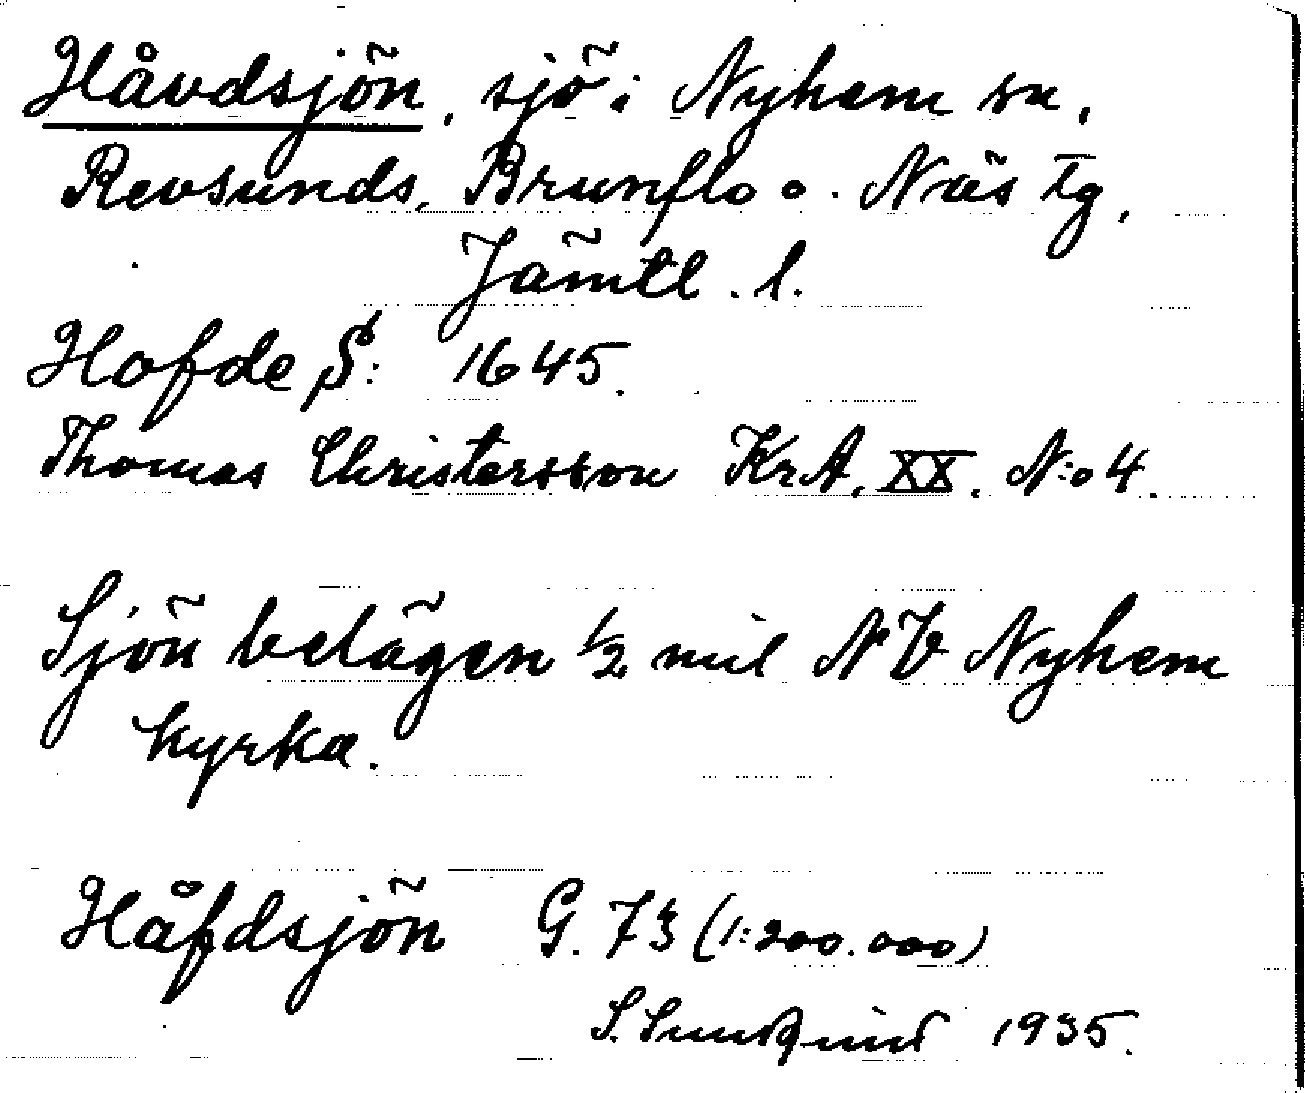 Håvdsjön, sjö i Nyhem sn,
Revsunds, Brunflo o. Näs tg,
Jämtl. l.
Hofde S: 1645.
Thomas Christersson KrA, XX. N:o 4.
Sjön belägen 1/2 mil NV Nyhem
kyrka.
Håfdsjön G. 73 (1:200.000)
S. Sundqvist 1935.